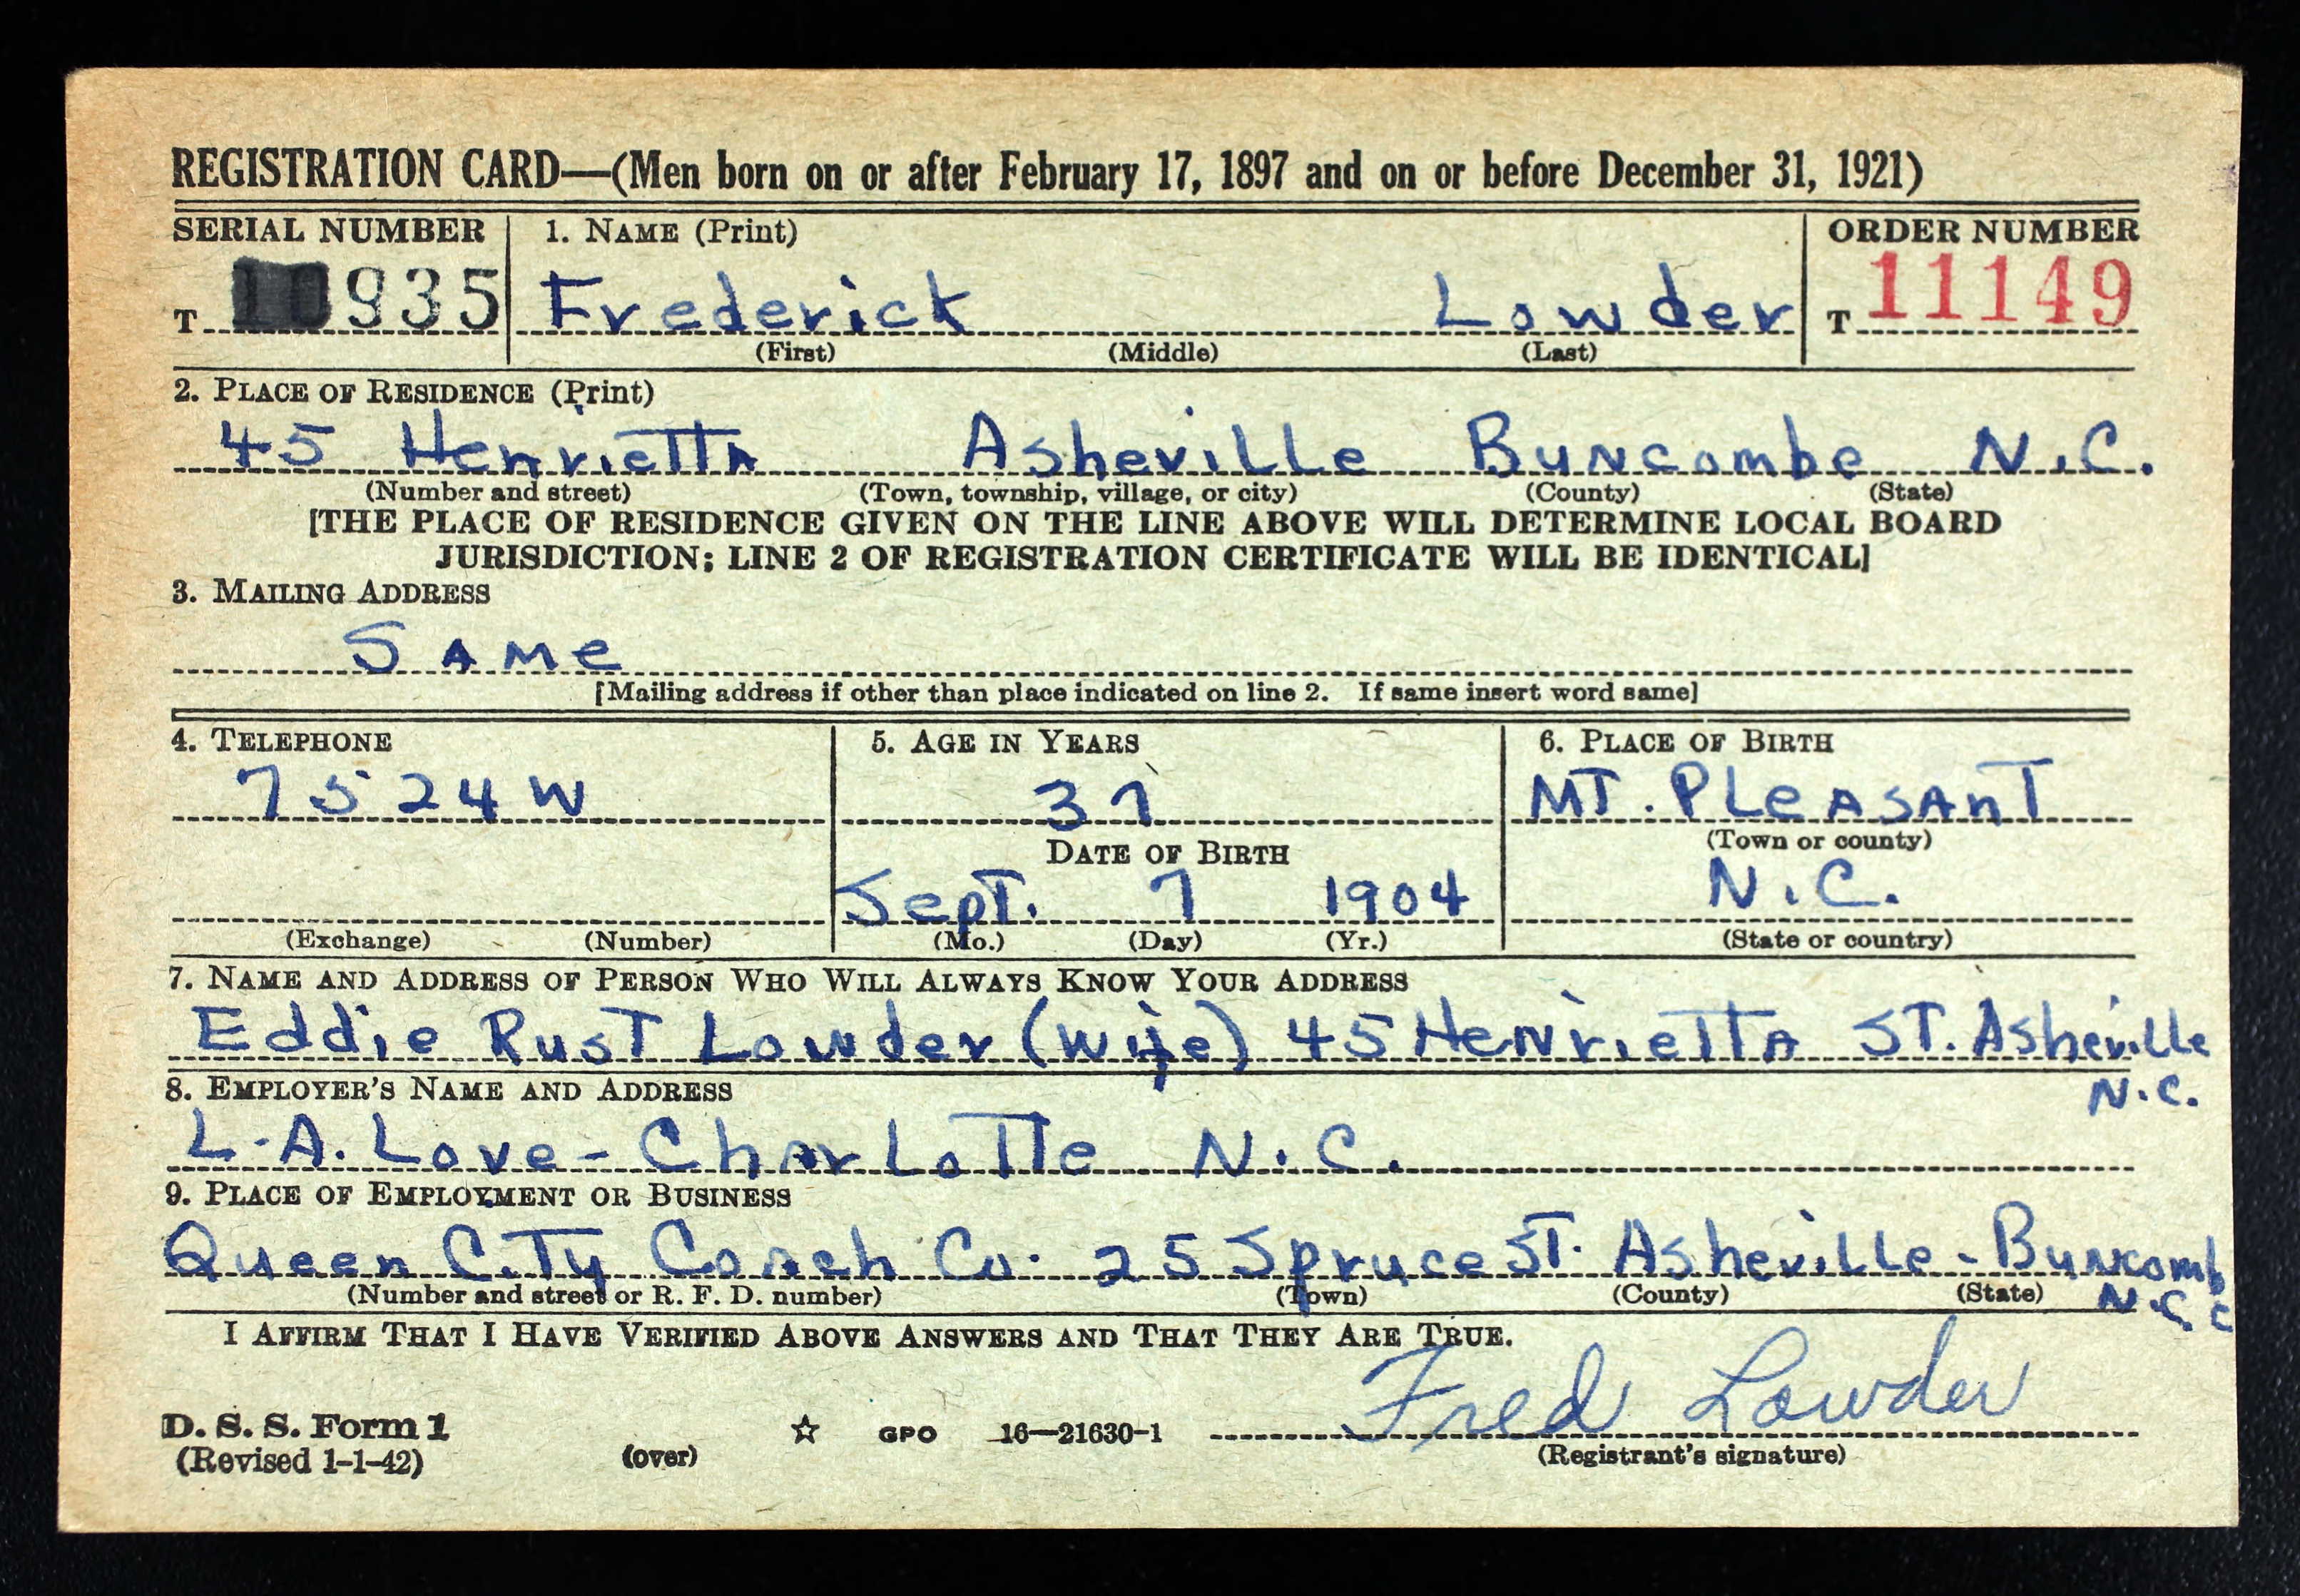 REGISTRATION CARD—(Men born on or after February 17, 1897 and on or before December 31, 1921)
SERIAL NUMBER 1. NAME (Print) ORDER NUMBER
T 10935 Frederick Lowder T 11149
(First) (Middle) (Last)
2. PLACE OF RESIDENCE (Print)
45 Henrietta Asheville Buncombe N.C.
(Number and street) (Town, township, village, or city) (County) (State)
[THE PLACE OF RESIDENCE GIVEN ON THE LINE ABOVE WILL DETERMINE LOCAL BOARD
JURISDICTION; LINE 2 OF REGISTRATION CERTIFICATE WILL BE IDENTICAL]
3. MAILING ADDRESS
SAme
[Mailing address if other than place indicated on line 2. If same insert word same]
4. TELEPHONE 5. AGE IN YEARS 6. PLACE OF BIRTH
7524W 37 MT. PLeASAnT
(Town or county)
DATE OF BIRTH
Sept. 7 1904 N.C.
(Exchange) (Number) (Mo.) (Day) (Yr.) (State or country)
7. NAME AND ADDRESS OF PERSON WHO WILL ALWAYS KNOW YOUR ADDRESS
Eddie Rust Lowder (wife) 45 Henrietta ST. Asheville
N.C.
8. EMPLOYER'S NAME AND ADDRESS
L.A. Love - Charlotte N.C.
9. PLACE OF EMPLOYMENT OR BUSINESS
Queen City Coach Co. 25 Spruce ST. Asheville - Buncomb
N.C.
(Number and street or R. F. D. number) (Town) (County) (State)
I AFFIRM THAT I HAVE VERIFIED ABOVE ANSWERS AND THAT THEY ARE TRUE.
Fred Lowder
D. S. S. Form 1
(Revised 1-1-42) (over) ☆ GPO 16—21630-1 (Registrant's signature)